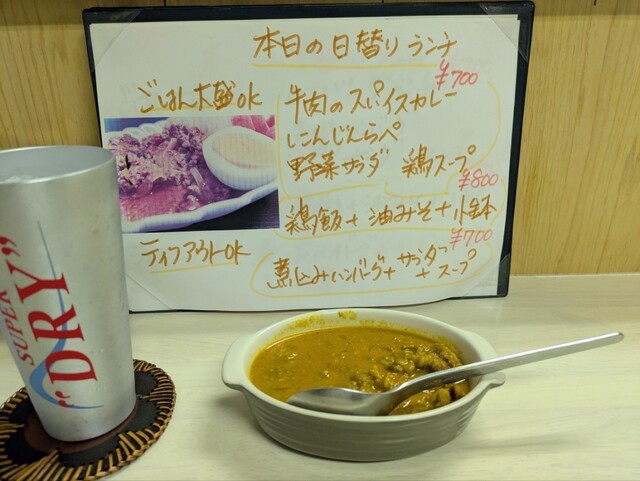 本日の日替りランチ
¥700
ごはん大盛OK
牛肉のスパイスカレー
にんじんらぺ
野菜サラダ 鶏スープ
¥800
鶏飯+油みそ+小鉢
¥700
テイクアウトOK
煮込みハンバーグ+サラダ+スープ
SUPER
"DRY"